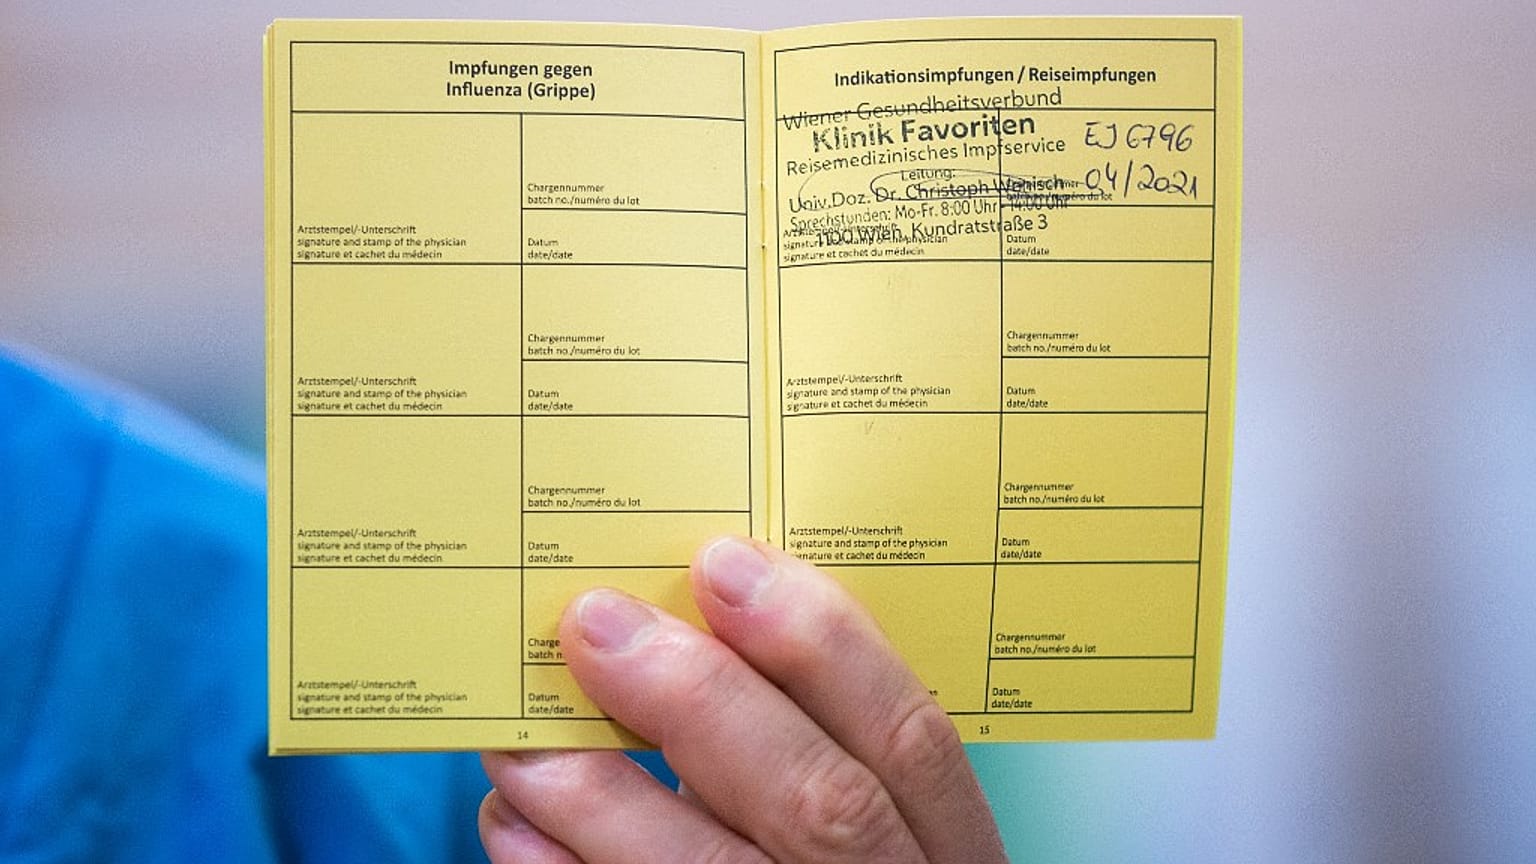 Impfungen gegen
Influenza (Grippe)
Chargennummer
batch no./numéro du lot
Arztstempel/-Unterschrift
signature and stamp of the physician
signature et cachet du médecin
Datum
date/date
Chargennummer
batch no./numéro du lot
Arztstempel/-Unterschrift
signature and stamp of the physician
signature et cachet du médecin
Datum
date/date
Chargennummer
batch no./numéro du lot
Arztstempel/-Unterschrift
signature and stamp of the physician
signature et cachet du médecin
Datum
date/date
Charge
batch n
Arztstempel/-Unterschrift
signature and stamp of the physician
signature et cachet du médecin
Datum
date/date
14
Indikationsimpfungen / Reiseimpfungen
Wiener Gesundheitsverbund
Klinik Favoriten
Reisemedizinisches Impfservice
Leitung:
Univ.Doz. Dr. Christoph Wenisch
Sprechstunden: Mo-Fr. 8:00 Uhr - 14:00 Uhr
1100 Wien, Kundratstraße 3
EJ 6796
04/2021
signature and stamp of the physician
signature et cachet du médecin
Datum
date/date
Chargennummer
batch no./numéro du lot
Arztstempel/-Unterschrift
signature and stamp of the physician
signature et cachet du médecin
Datum
date/date
Chargennummer
batch no./numéro du lot
Arztstempel/-Unterschrift
signature and stamp of the physician
signature et cachet du médecin
Datum
date/date
Chargennummer
batch no./numéro du lot
Datum
date/date
15